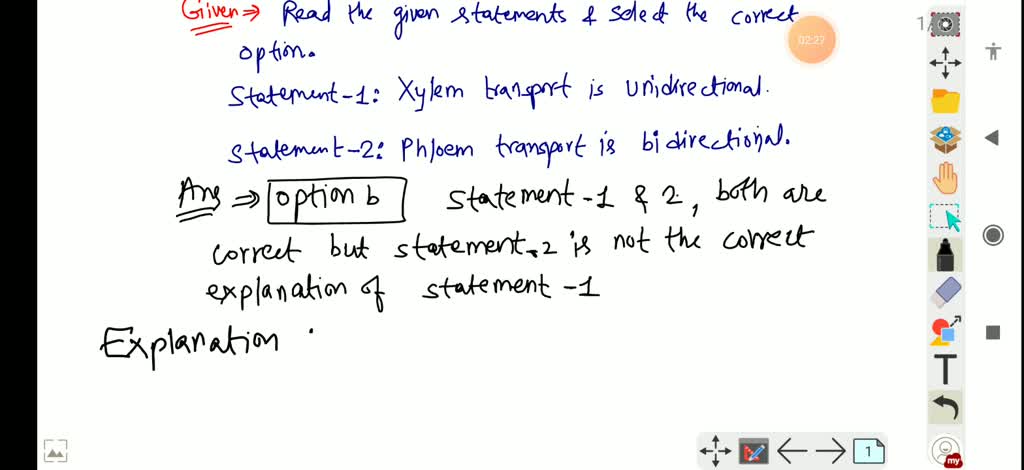 Given ⇒ Read the given statements & select the correct
option.
Statement-1: Xylem transport is unidirectional.
Statement-2: Phloem transport is bidirectional.
Ans ⇒ option b Statement -1 & 2, both are
correct but statement-2 is not the correct
explanation of statement -1
Explanation :
02:27
1/
T
1
my